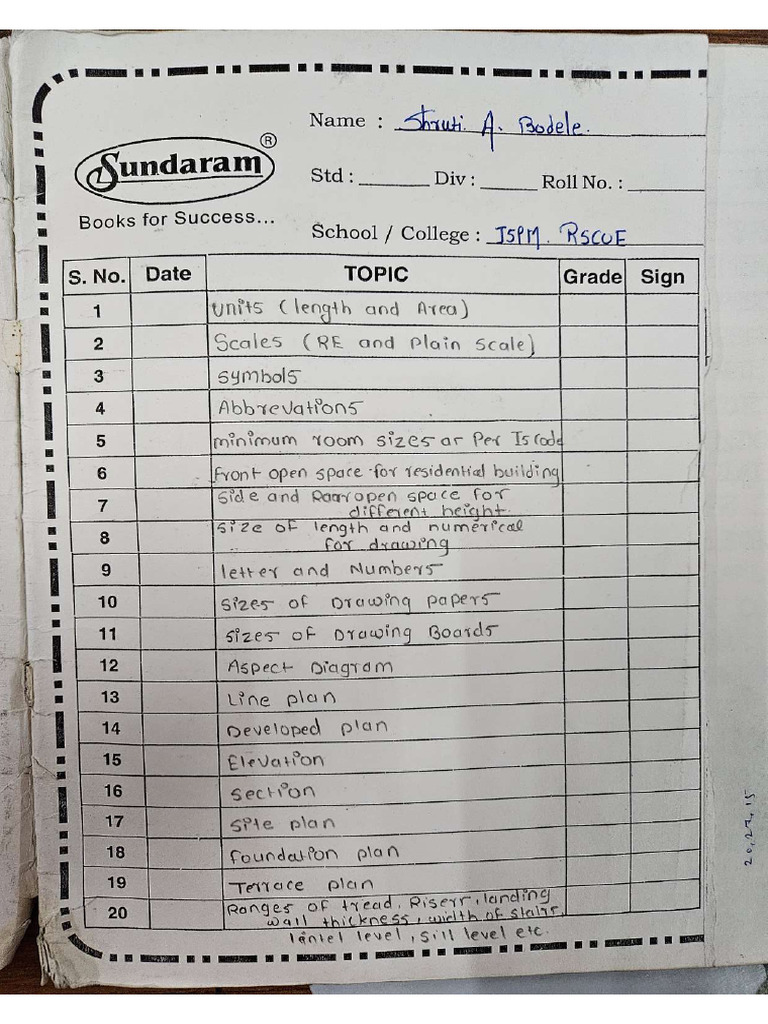 Name : Shruti. A. Bodele.
Sundaram ®
Std : Div : Roll No. :
Books for Success...
School / College : JSPM. RSCOE
S. No. Date TOPIC Grade Sign
1 Units (length and Area)
2 Scales (RF and Plain Scale)
3 Symbols
4 Abbrevations
5 minimum room sizes as Per Is code
6 front open space for residential building
7 Side and Rear open space for
different height.
8 Size of length and numerical
for drawing
9 letter and Numbers
10 Sizes of Drawing papers
11 Sizes of Drawing Boards
12 Aspect Diagram
13 Line plan
14 Developed plan
15 Elevation
16 Section
17 Site plan
18 foundation plan
19 Terrace plan
20 Ranges of tread, Riserr, landing
wall thickness, width of stairs,
lantel level, sill level etc.
20,27,15